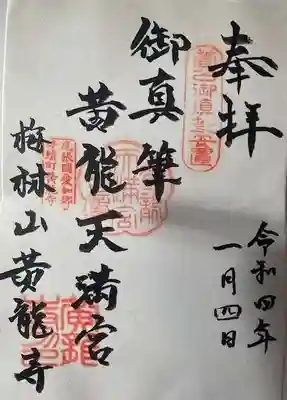 奉拝
令和四年
一月四日
御真筆
黄龍天満宮
梅林山黄龍寺